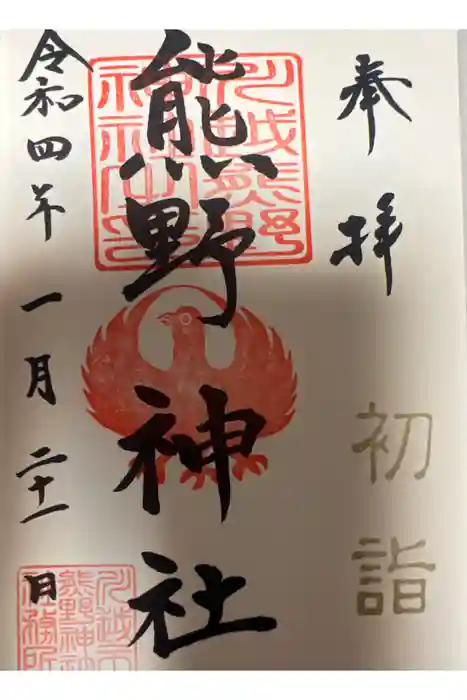 奉拝
初詣
熊野神社
川越熊野神社之印
令和四年一月二十一日
川越市熊野神社社務所